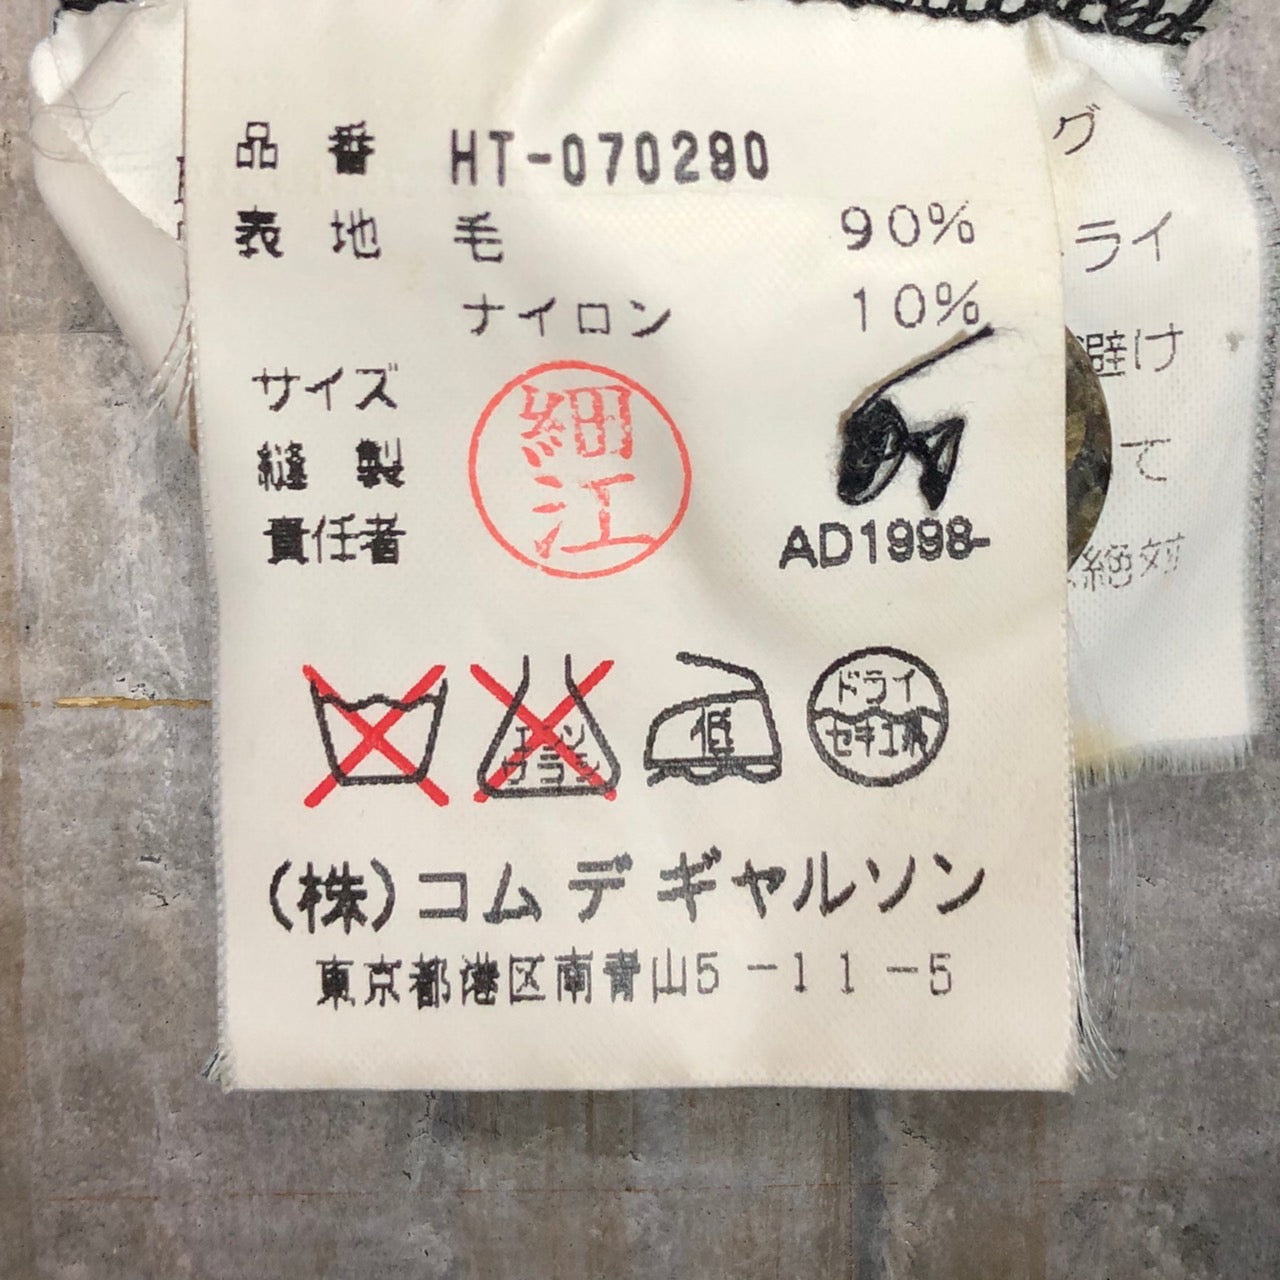 品番 HT-070290
表地 毛 90%
ナイロン 10%
サイズ
縫製
責任者
細江
AD1998-
エンソ
サラシ
低
ドライ
セキユ系
(株)コム デ ギャルソン
東京都港区南青山5-11-5
グ
ライ
避け
て
絶対